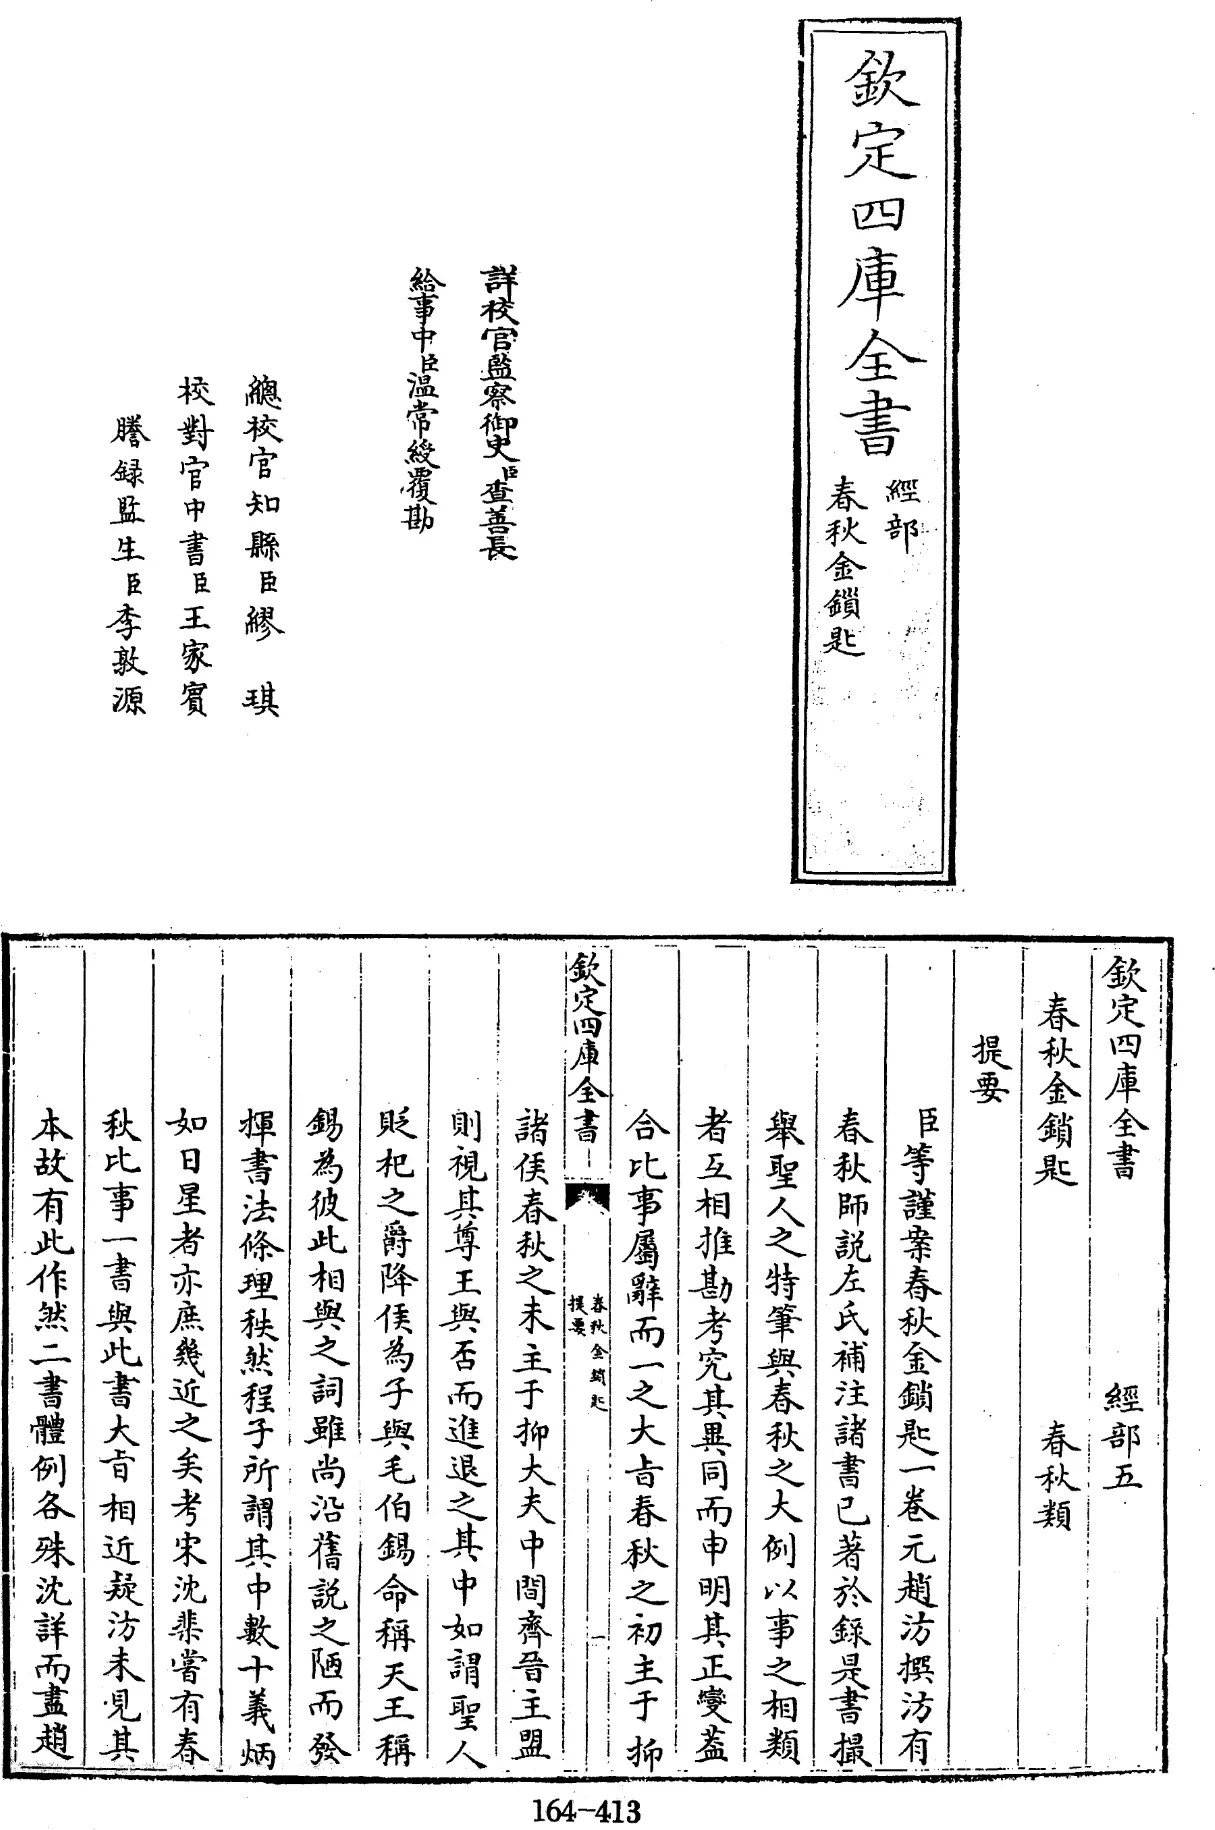 欽定四庫全書
經部
春秋金鎖匙
詳校官監察御史臣查善長
給事中臣溫常綬覆勘
總校官知縣臣繆琪
校對官中書臣王家賓
謄録監生臣李敦源
欽定四庫全書 經部五
春秋金鎖匙 春秋類
提要
臣等謹案春秋金鎖匙一卷元趙汸撰汸有
春秋師説左氏補注諸書已著於錄是書撮
舉聖人之特筆與春秋之大例以事之相類
者互相推勘考究其異同而申明其正變蓋
合比事屬辭而一之大旨春秋之初主于抑
欽定四庫全書
春秋金鎖匙
提要
一
諸侯春秋之末主于抑大夫中間齊晉主盟
則視其尊王與否而進退之其中如謂聖人
貶杞之爵降侯為子與毛伯錫命稱天王稱
錫為彼此相與之詞雖尚沿舊説之陋而發
揮書法條理秩然程子所謂其中數十義炳
如日星者亦庶幾近之矣考宋沈棐嘗有春
秋比事一書與此書大旨相近疑汸未見其
本故有此作然二書體例各殊沈詳而盡趙
164-413